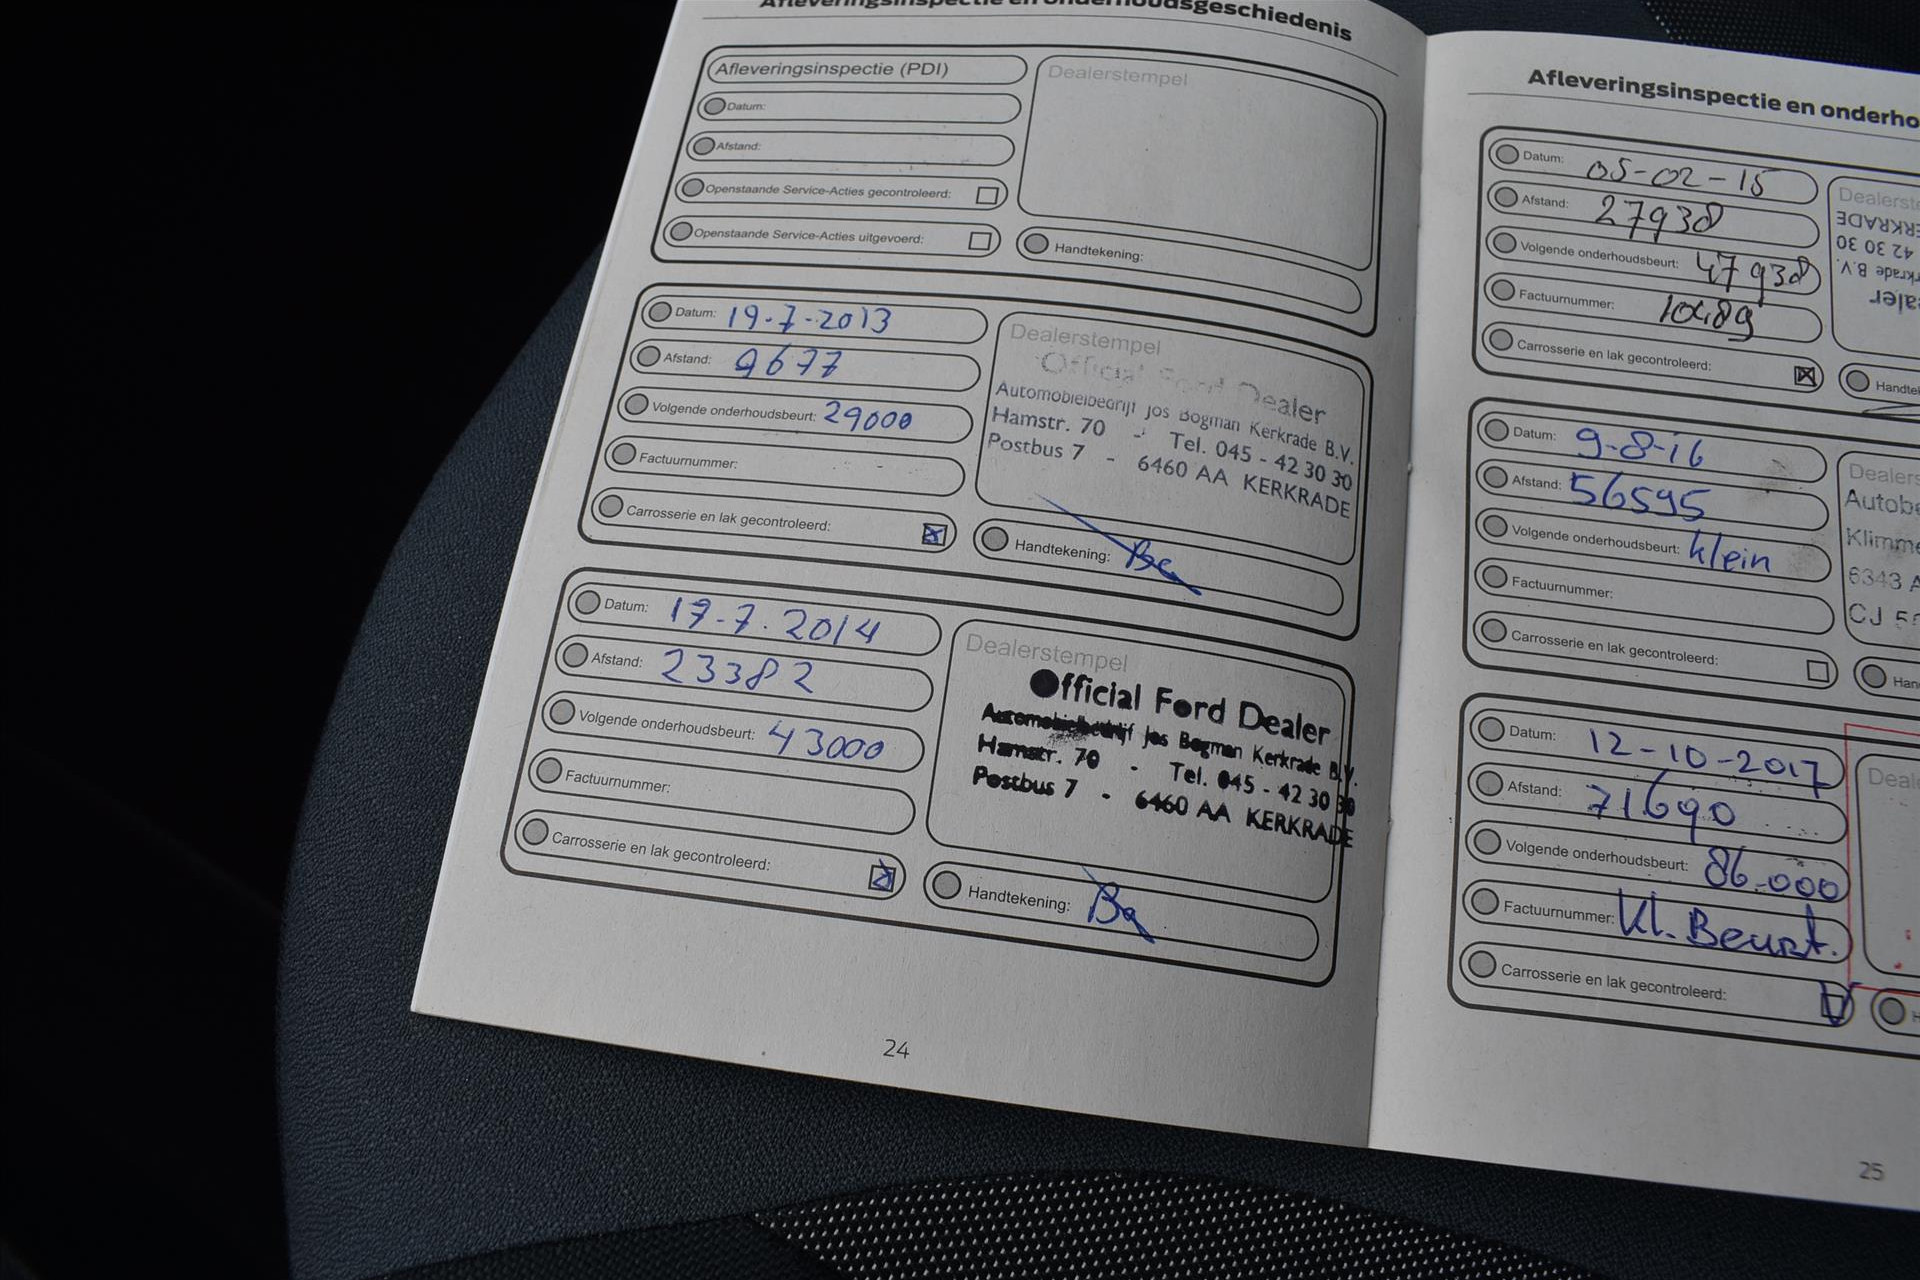 Afleveringsinspectie en onderhoudsgeschiedenis
Afleveringsinspectie (PDI)
Datum:
Afstand:
Openstaande Service-Acties gecontroleerd:
Openstaande Service-Acties uitgevoerd:
Dealerstempel
Handtekening:
Datum: 19-7-2013
Afstand: 9677
Volgende onderhoudsbeurt: 29000
Factuurnummer:
Carrosserie en lak gecontroleerd:
Dealerstempel
Official Ford Dealer
Automobielbedrijf Jos Bogman Kerkrade B.V.
Hamstr. 70 - Tel. 045 - 42 30 30
Postbus 7 - 6460 AA KERKRADE
Handtekening:
Datum: 17.7.2014
Afstand: 23382
Volgende onderhoudsbeurt: 43000
Factuurnummer:
Carrosserie en lak gecontroleerd:
Dealerstempel
Official Ford Dealer
Automobielbedrijf Jos Bogman Kerkrade B.V.
Hamstr. 70 - Tel. 045 - 42 30 30
Postbus 7 - 6460 AA KERKRADE
Handtekening:
24
Afleveringsinspectie en onderho
Datum: 05-02-15
Afstand: 27938
Volgende onderhoudsbeurt: 47938
Factuurnummer:
Carrosserie en lak gecontroleerd:
Dealerste
ERKRADE
42 30 30
krade B.V.
ealer
Handte
Datum: 9-8-16
Afstand: 56595
Volgende onderhoudsbeurt: klein
Factuurnummer:
Carrosserie en lak gecontroleerd:
Dealers
Autobe
Klimme
6343 A
CJ
Han
Datum: 12-10-2017
Afstand: 71690
Volgende onderhoudsbeurt: 86.000
Factuurnummer: Kl. Beurt.
Carrosserie en lak gecontroleerd:
Deal
H
25